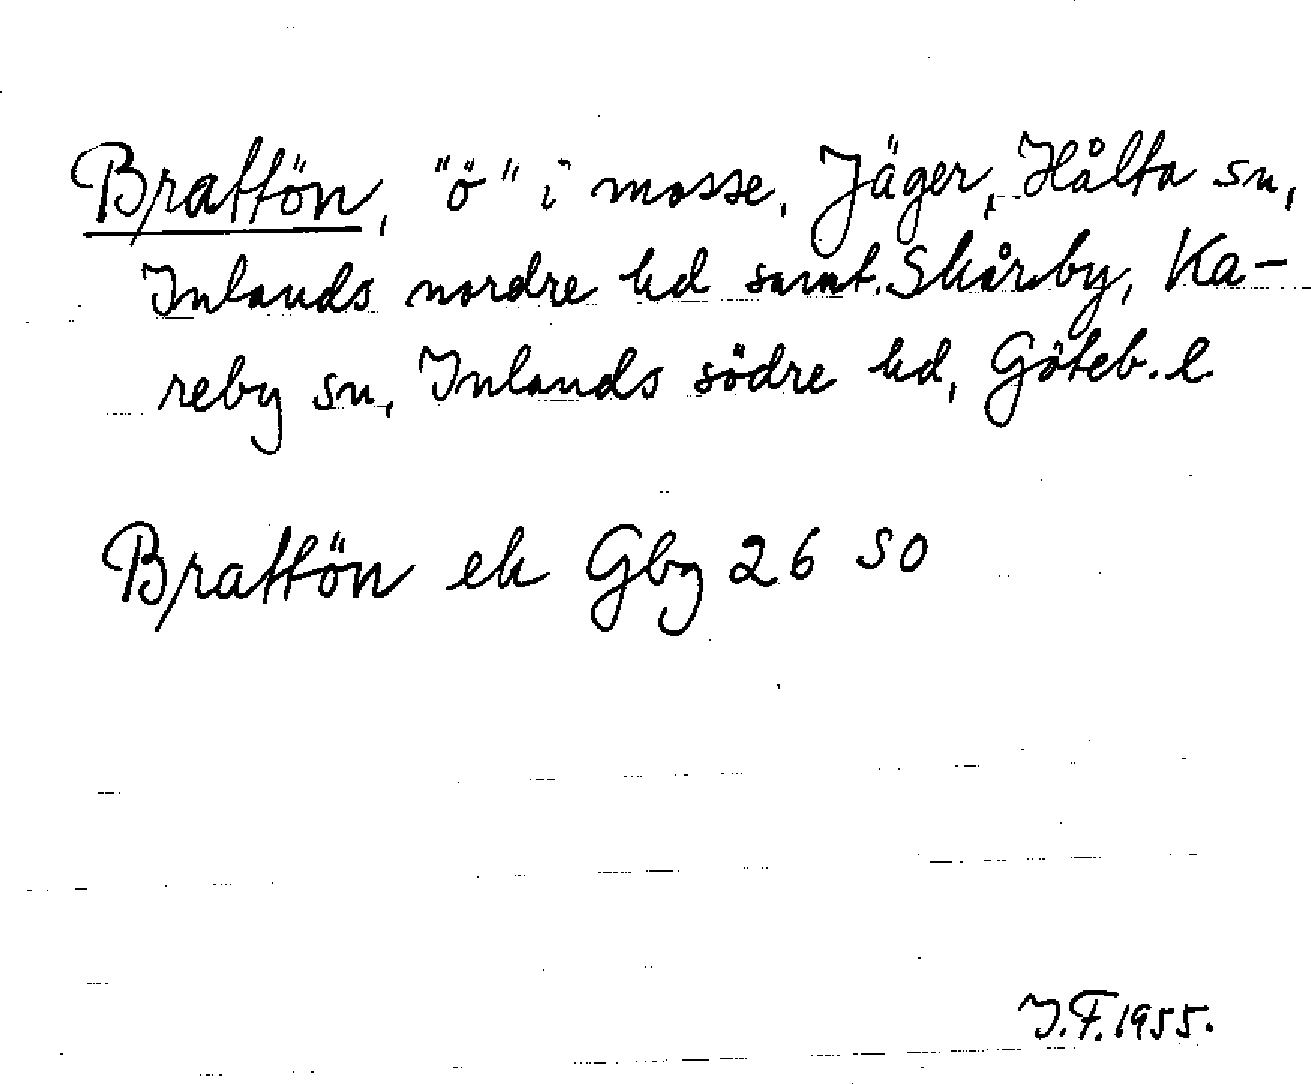 Brattön, "ö" i mosse, Jäger, Hålta sn,
Inlands nordre hd samt. Skårby, Ka-
reby sn, Inlands södre hd, Göteb. l
Brattön ek Gbg 26 SO
J.F. 1955.